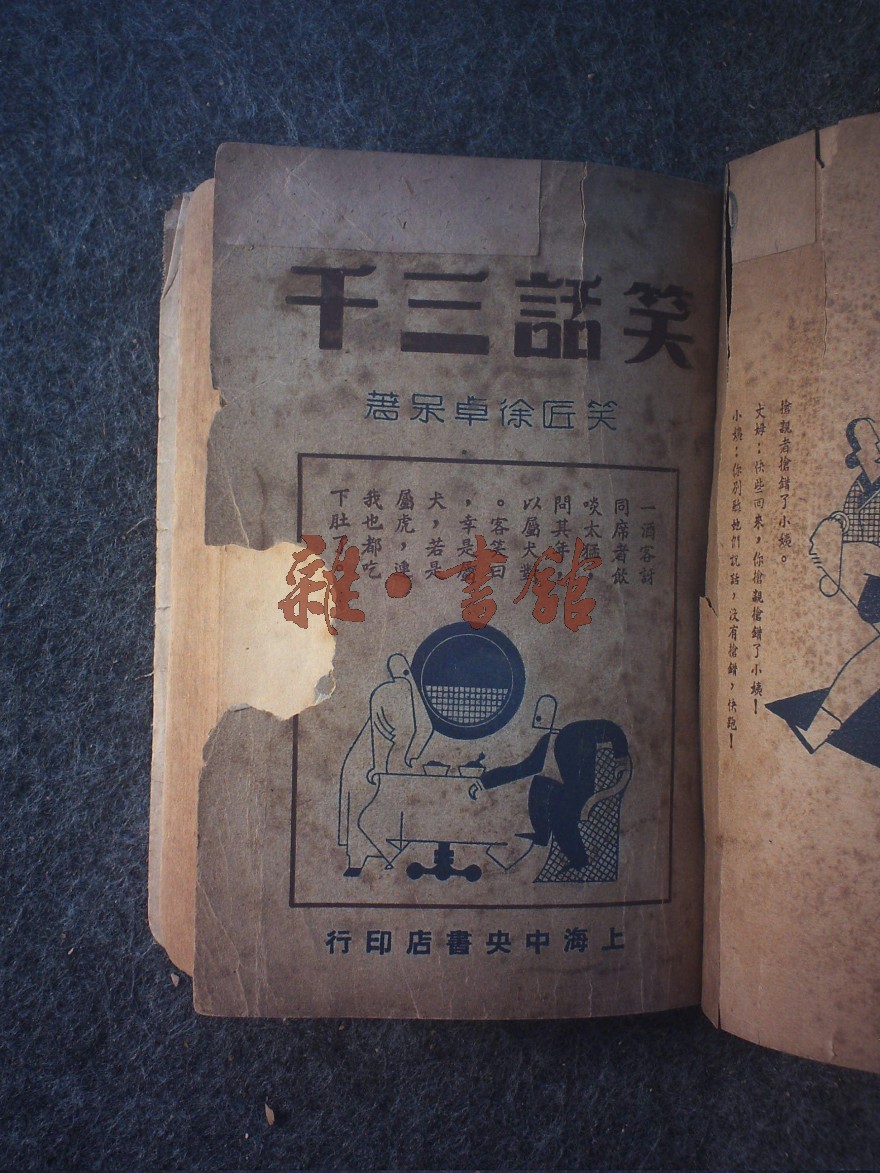 笑話三千
笑匠徐卓呆著
一酒客訝
同席者飲
啖太猛，
問其年
以屬犬對
。客笑曰
，幸是屬
犬，若是
屬虎，連
我也都吃
下肚
雜·書館
上海中央書店印行
搶親者搶錯了小姨。
丈母：快些回來，你搶親搶錯了小姨！
小姨：你別聽她們說話，沒有搶錯，快跑！